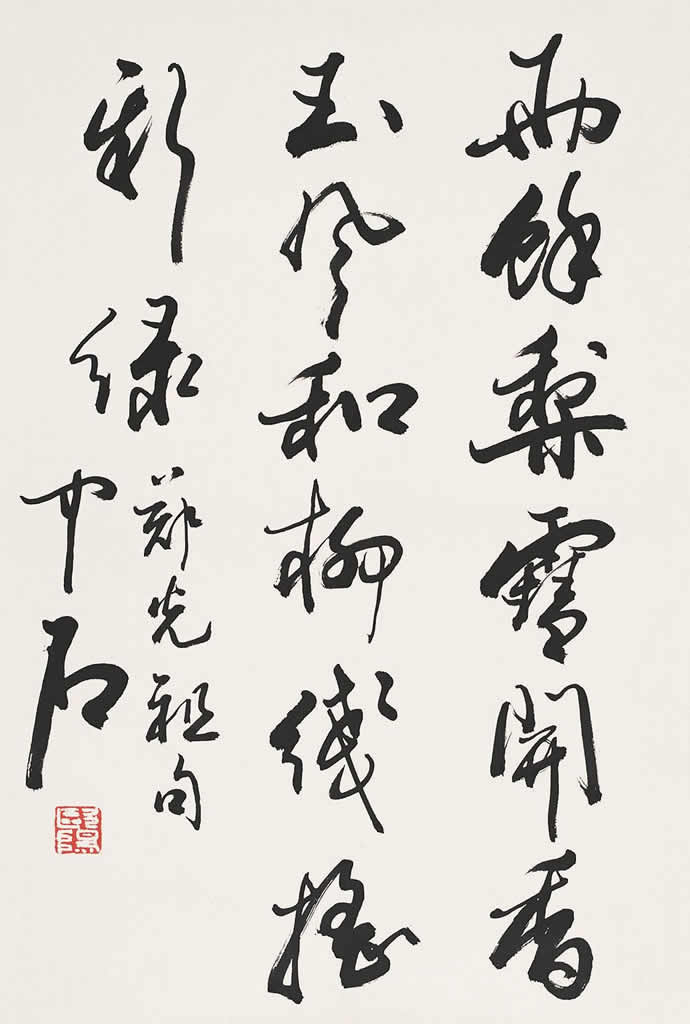 雨餘梨雪開香
玉風和柳綫搖
新綠
鄭光祖句
中石